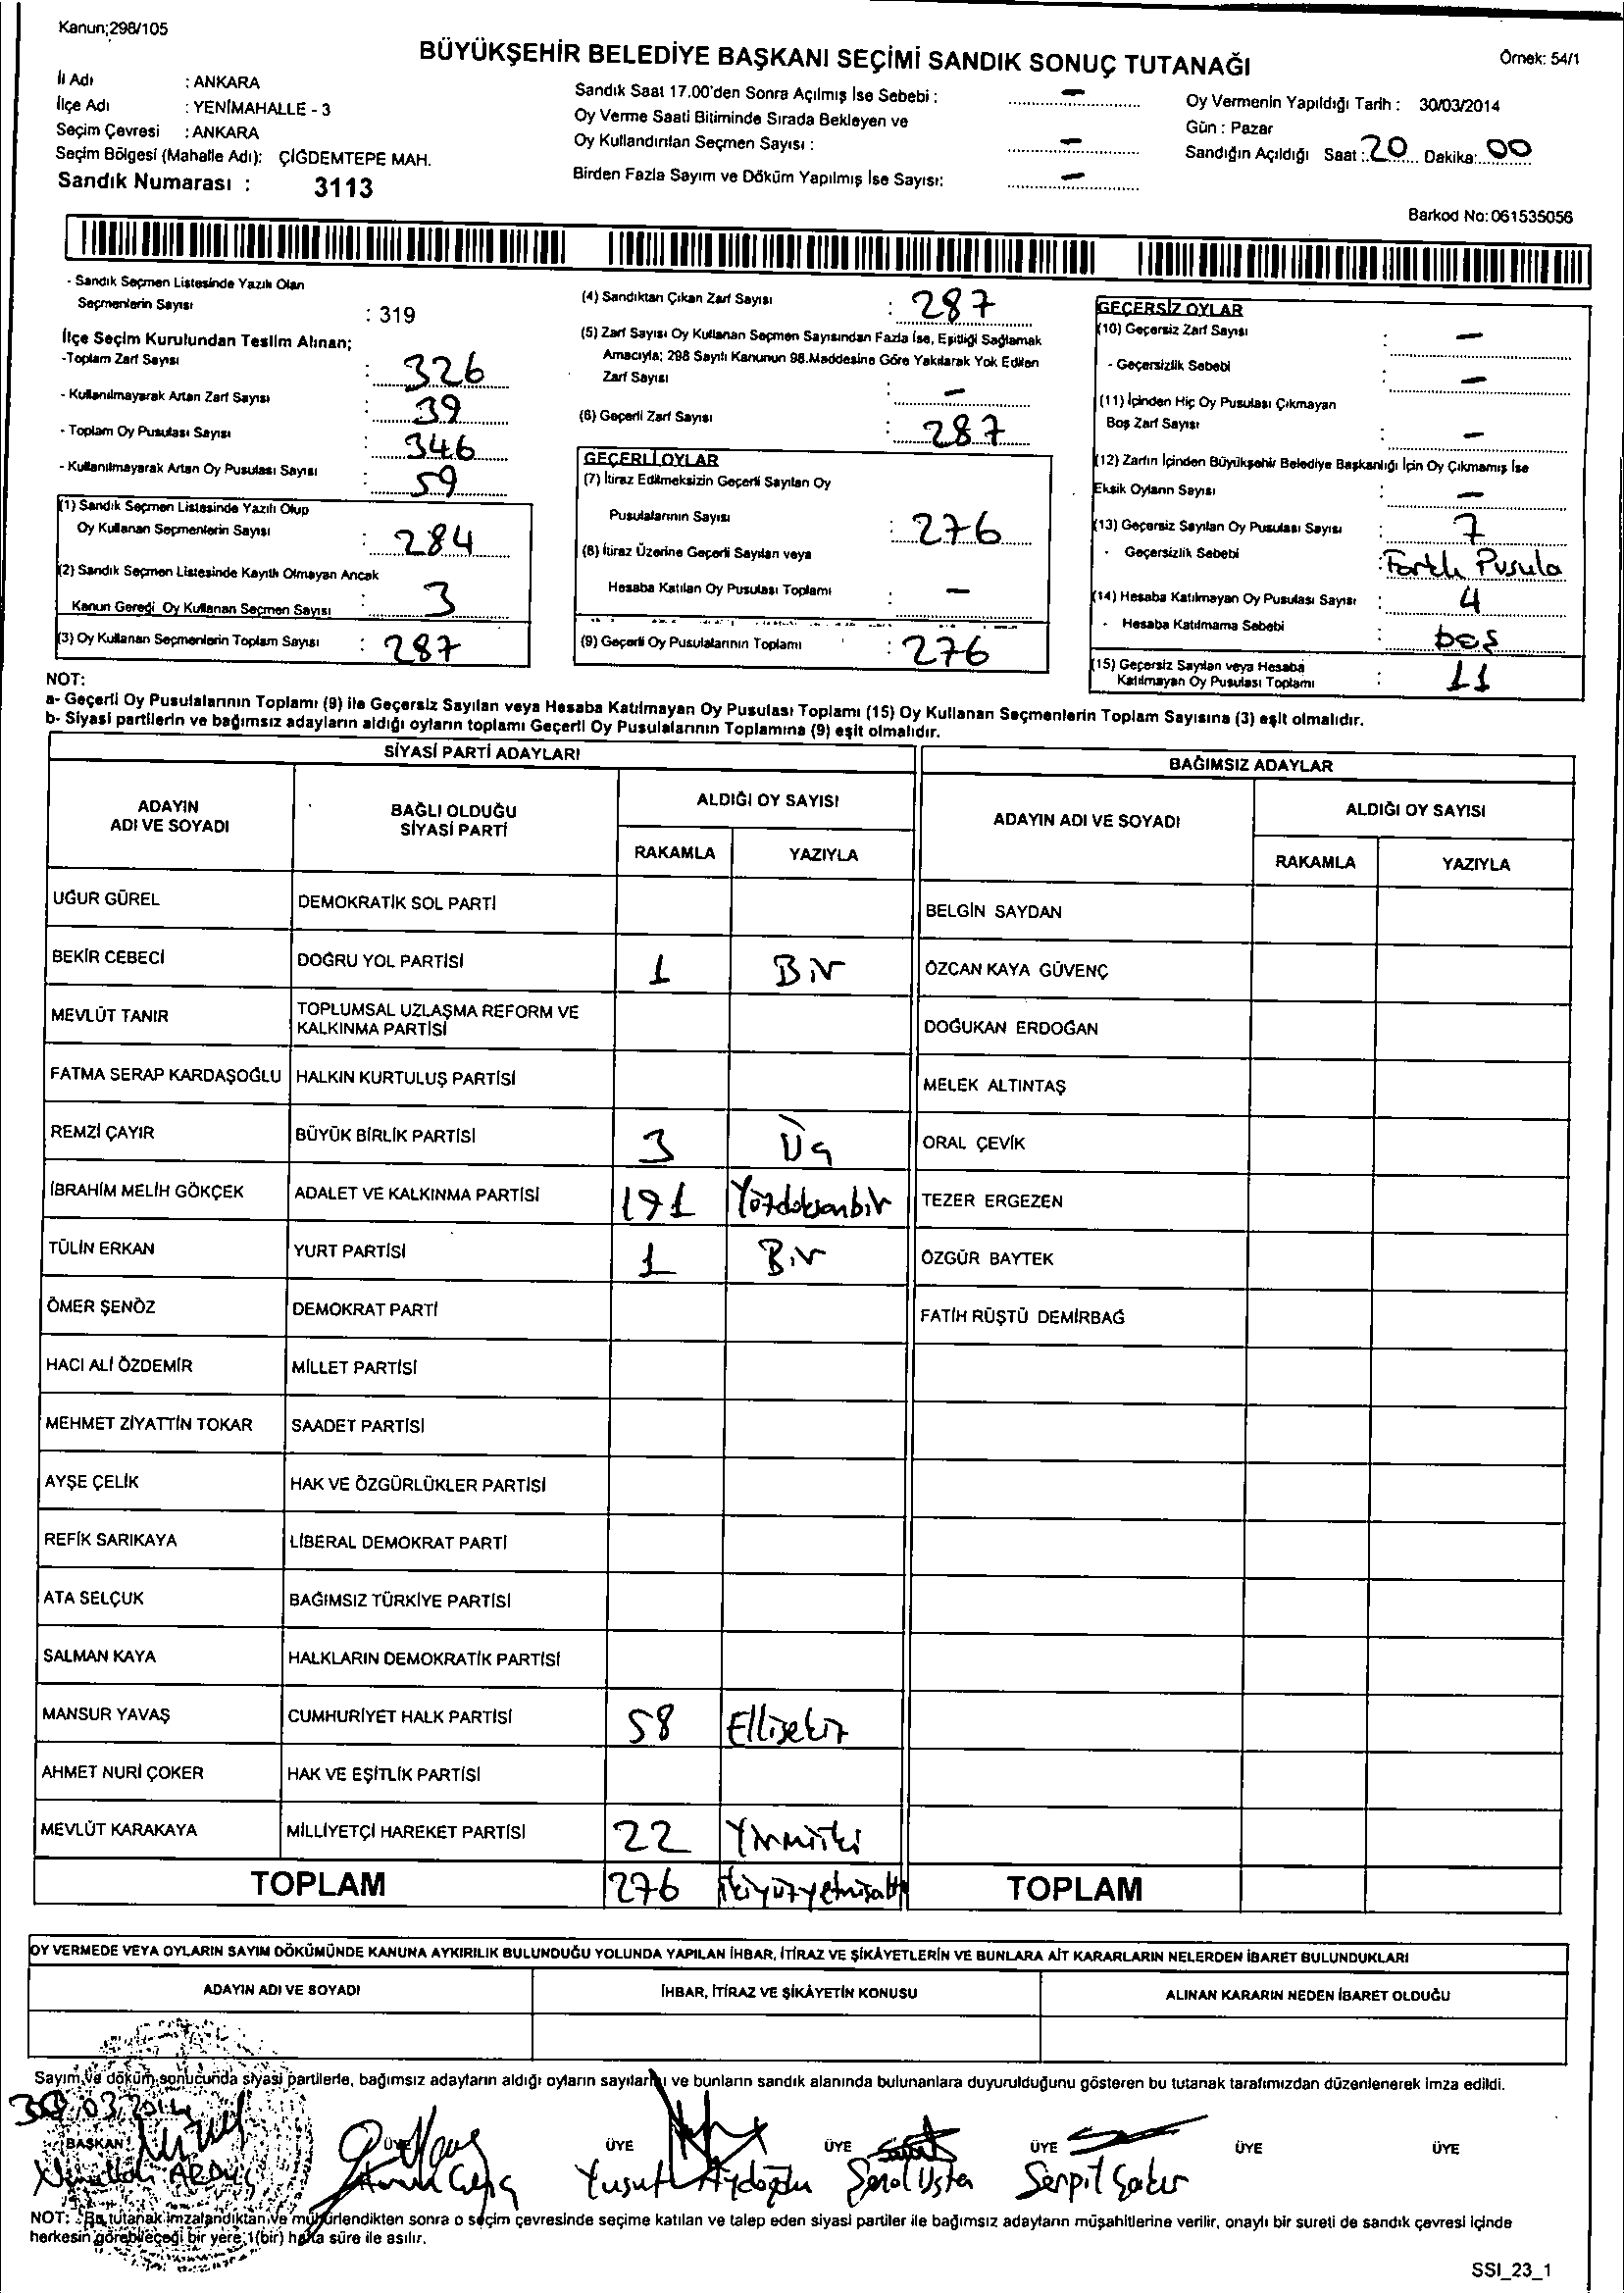 Kanun;298/105
BÜYÜKŞEHİR BELEDİYE BAŞKANI SEÇİMİ SANDIK SONUÇ TUTANAĞI
Örnek: 54/1
İl Adı : ANKARA
İlçe Adı : YENİMAHALLE - 3
Seçim Çevresi : ANKARA
Seçim Bölgesi (Mahalle Adı): ÇİĞDEMTEPE MAH.
Sandık Numarası : 3113
Sandık Saat 17.00'den Sonra Açılmış İse Sebebi : –
Oy Verme Saati Bitiminde Sırada Bekleyen ve
Oy Kullandırılan Seçmen Sayısı : –
Birden Fazla Sayım ve Döküm Yapılmış İse Sayısı: –
Oy Vermenin Yapıldığı Tarih : 30/03/2014
Gün : Pazar
Sandığın Açıldığı Saat : 20 Dakika: 00
Barkod No: 061535056
- Sandık Seçmen Listesinde Yazılı Olan
Seçmenlerin Sayısı : 319
İlçe Seçim Kurulundan Teslim Alınan;
-Toplam Zarf Sayısı : 326
- Kullanılmayarak Artan Zarf Sayısı : 39
- Toplam Oy Pusulası Sayısı : 346
- Kullanılmayarak Artan Oy Pusulası Sayısı : 59
(1) Sandık Seçmen Listesinde Yazılı Olup
Oy Kullanan Seçmenlerin Sayısı : 284
(2) Sandık Seçmen Listesinde Kayıtlı Olmayan Ancak
Kanun Gereği Oy Kullanan Seçmen Sayısı : 3
(3) Oy Kullanan Seçmenlerin Toplam Sayısı : 287
(4) Sandıktan Çıkan Zarf Sayısı : 287
(5) Zarf Sayısı Oy Kullanan Seçmen Sayısından Fazla İse, Eşitliği Sağlamak
Amacıyla; 298 Sayılı Kanunun 98.Maddesine Göre Yakılarak Yok Edilen
Zarf Sayısı : –
(6) Geçerli Zarf Sayısı : 287
GEÇERLİ OYLAR
(7) İtiraz Edilmeksizin Geçerli Sayılan Oy
Pusulalarının Sayısı : 276
(8) İtiraz Üzerine Geçerli Sayılan veya
Hesaba Katılan Oy Pusulası Toplamı : –
(9) Geçerli Oy Pusulalarının Toplamı : 276
GEÇERSİZ OYLAR
(10) Geçersiz Zarf Sayısı : –
- Geçersizlik Sebebi : –
(11) İçinden Hiç Oy Pusulası Çıkmayan
Boş Zarf Sayısı : –
(12) Zarfın İçinden Büyükşehir Belediye Başkanlığı İçin Oy Çıkmamış İse
Eksik Oyların Sayısı : –
(13) Geçersiz Sayılan Oy Pusulası Sayısı : 7
- Geçersizlik Sebebi : Farklı Pusula
(14) Hesaba Katılmayan Oy Pusulası Sayısı : 4
- Hesaba Katılmama Sebebi : boş
(15) Geçersiz Sayılan veya Hesaba
Katılmayan Oy Pusulası Toplamı : 11
NOT:
a- Geçerli Oy Pusulalarının Toplamı (9) ile Geçersiz Sayılan veya Hesaba Katılmayan Oy Pusulası Toplamı (15) Oy Kullanan Seçmenlerin Toplam Sayısına (3) eşit olmalıdır.
b- Siyasi partilerin ve bağımsız adayların aldığı oyların toplamı Geçerli Oy Pusulalarının Toplamına (9) eşit olmalıdır.
SİYASİ PARTİ ADAYLARI
ADAYIN ADI VE SOYADI BAĞLI OLDUĞU SİYASİ PARTİ ALDIĞI OY SAYISI
RAKAMLA YAZIYLA
UĞUR GÜREL DEMOKRATİK SOL PARTİ
BEKİR CEBECİ DOĞRU YOL PARTİSİ 1 Bir
MEVLÜT TANIR TOPLUMSAL UZLAŞMA REFORM VE KALKINMA PARTİSİ
FATMA SERAP KARDAŞOĞLU HALKIN KURTULUŞ PARTİSİ
REMZİ ÇAYIR BÜYÜK BİRLİK PARTİSİ 3 Üç
İBRAHİM MELİH GÖKÇEK ADALET VE KALKINMA PARTİSİ 191 Yüzdoksanbir
TÜLİN ERKAN YURT PARTİSİ 1 Bir
ÖMER ŞENÖZ DEMOKRAT PARTİ
HACI ALİ ÖZDEMİR MİLLET PARTİSİ
MEHMET ZİYATTİN TOKAR SAADET PARTİSİ
AYŞE ÇELİK HAK VE ÖZGÜRLÜKLER PARTİSİ
REFİK SARIKAYA LİBERAL DEMOKRAT PARTİ
ATA SELÇUK BAĞIMSIZ TÜRKİYE PARTİSİ
SALMAN KAYA HALKLARIN DEMOKRATİK PARTİSİ
MANSUR YAVAŞ CUMHURİYET HALK PARTİSİ 58 Ellisekiz
AHMET NURİ ÇOKER HAK VE EŞİTLİK PARTİSİ
MEVLÜT KARAKAYA MİLLİYETÇİ HAREKET PARTİSİ 22 Yirmiiki
TOPLAM 276 ikiyüzyetmişaltı
BAĞIMSIZ ADAYLAR
ADAYIN ADI VE SOYADI ALDIĞI OY SAYISI
RAKAMLA YAZIYLA
BELGİN SAYDAN
ÖZCAN KAYA GÜVENÇ
DOĞUKAN ERDOĞAN
MELEK ALTINTAŞ
ORAL ÇEVİK
TEZER ERGEZEN
ÖZGÜR BAYTEK
FATİH RÜŞTÜ DEMİRBAĞ
TOPLAM
OY VERMEDE VEYA OYLARIN SAYIM DÖKÜMÜNDE KANUNA AYKIRILIK BULUNDUĞU YOLUNDA YAPILAN İHBAR, İTİRAZ VE ŞİKÂYETLERİN VE BUNLARA AİT KARARLARIN NELERDEN İBARET BULUNDUKLARI
ADAYIN ADI VE SOYADI İHBAR, İTİRAZ VE ŞİKÂYETİN KONUSU ALINAN KARARIN NEDEN İBARET OLDUĞU
Sayım ve döküm sonucunda siyasi partilerle, bağımsız adayların aldığı oyların sayılarını ve bunların sandık alanında bulunanlara duyurulduğunu gösteren bu tutanak tarafımızdan düzenlenerek imza edildi.
BAŞKAN ÜYE ÜYE ÜYE ÜYE ÜYE ÜYE
Yusuf Aydoğdu Şenol Usta Serpil Şakır
NOT: Bu tutanak imzalandıktan ve mühürlendikten sonra o seçim çevresinde seçime katılan ve talep eden siyasi partiler ile bağımsız adayların müşahitlerine verilir, onaylı bir sureti de sandık çevresi içinde
herkesin görebileceği bir yere 1(bir) hafta süre ile asılır.
SSI_23_1